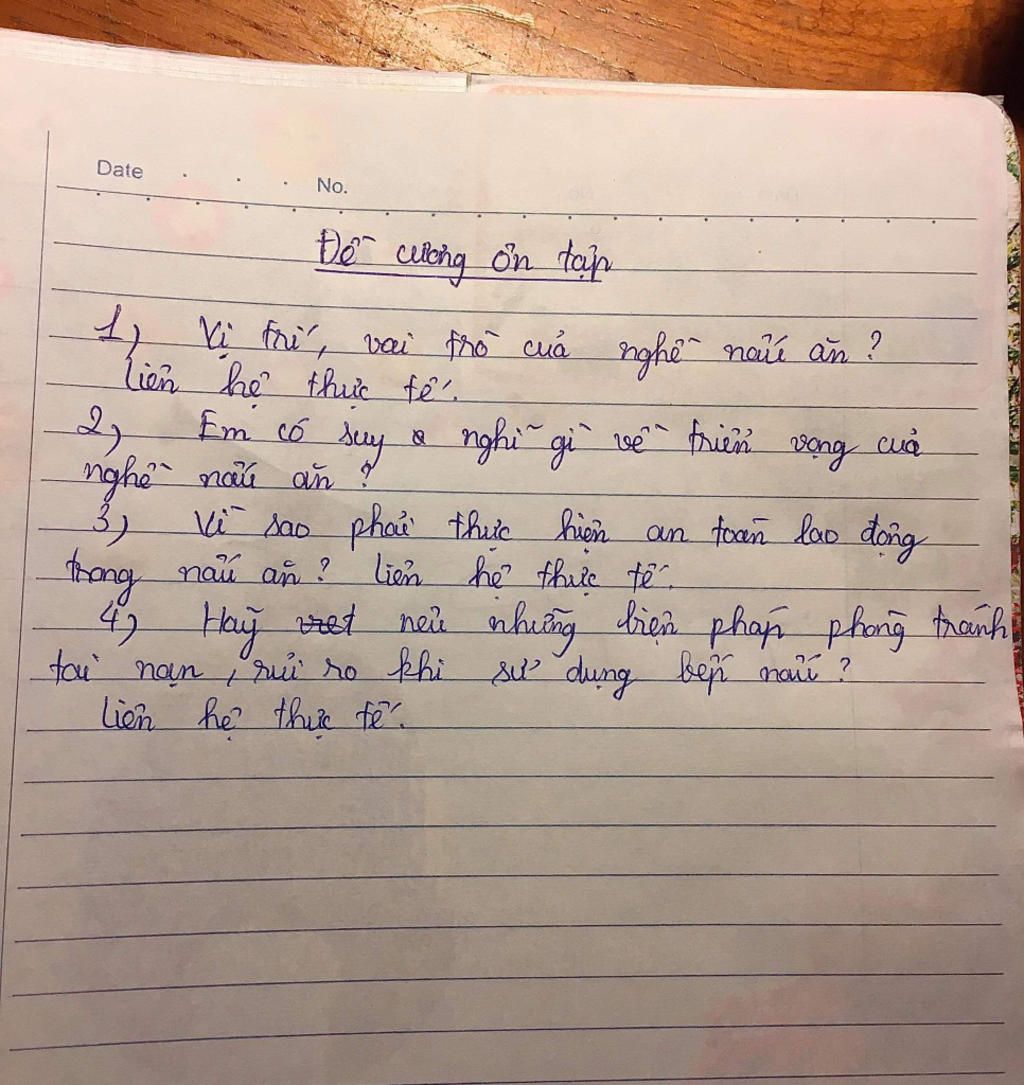 Date . . . No.
Đề cương ôn tập
1) Vị trí, vai trò của nghề nấu ăn?
Liên hệ thực tế.
2) Em có suy nghĩ gì về triển vọng của
nghề nấu ăn?
3) Vì sao phải thực hiện an toàn lao động
trong nấu ăn? Liên hệ thực tế.
4) Hãy nêu những biện pháp phòng tránh
tai nạn, rủi ro khi sử dụng bếp nấu?
Liên hệ thực tế.